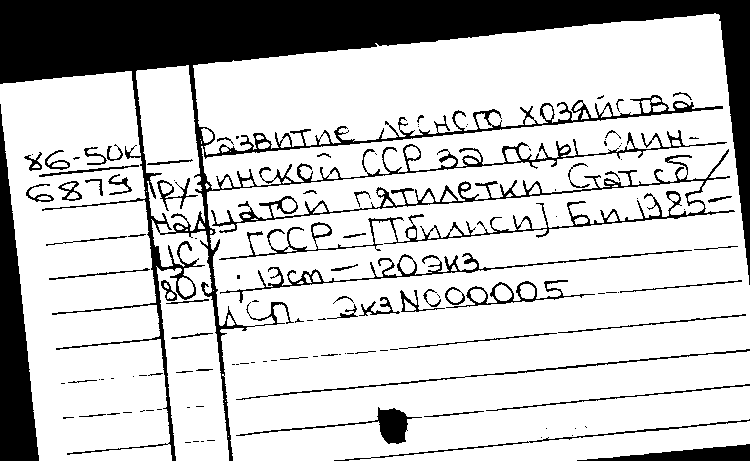 86-50к Развитие лесного хозяйства
6879 Грузинской ССР за годы один-
надцатой пятилетки. Стат. сб /
ЦСУ ГССР.-[Тбилиси]: Б.и. 1985.-
80с ; 19 см.- 120 экз.
ДСП. Экз.N000005.